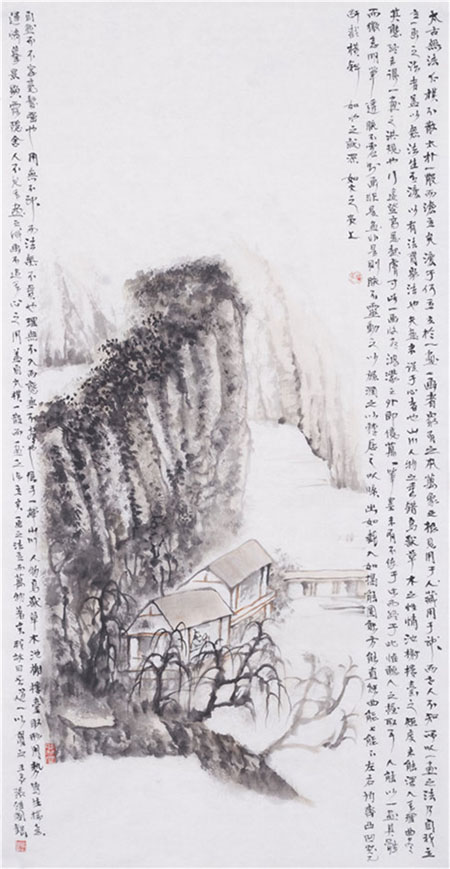 太古無法太樸不散太朴一散而法立矣法于何立立於一畫一畫者眾有之本萬象之根見用于人藏用于神而世人不知所以一畫之法乃自我立
立一畫之法者蓋以無法生有法以有法貫眾法也夫畫者從于心者也山川人物之秀錯鳥獸草木之性情池榭樓臺之矩度未能深入其理曲盡
其態終未得一畫之洪規也行遠登高悉起膚寸此一畫收盡鴻濛之外即億萬萬筆墨未有不始于此而終于此惟聽人之握取耳人能以一畫具體
而微意明筆透腕不虛則畫非是畫非是則腕不靈動之以旋潤之以轉居之以曠出如截入如揭能圓能方能直能曲能上能下左右均齊凸凹突兀
斷截橫斜如水之就深如火之炎上
自然而不容毫髮強也用無不神而法無不貫也理無不入而態無不盡也信手一揮山川人物鳥獸草木池榭樓臺取形用勢寫生揣意
運情摹景顯露隱含人不見其畫之成畫不違其心之用蓋自太樸散而一畫之法立矣一畫之法立而萬物著矣我故曰吾道一以貫之